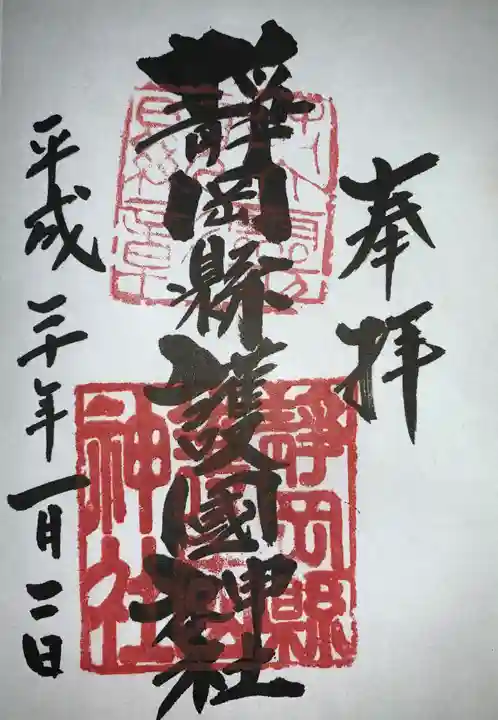 奉拝
靜岡縣護國神社
平成三十年一月二日
靜岡縣
護國
神社